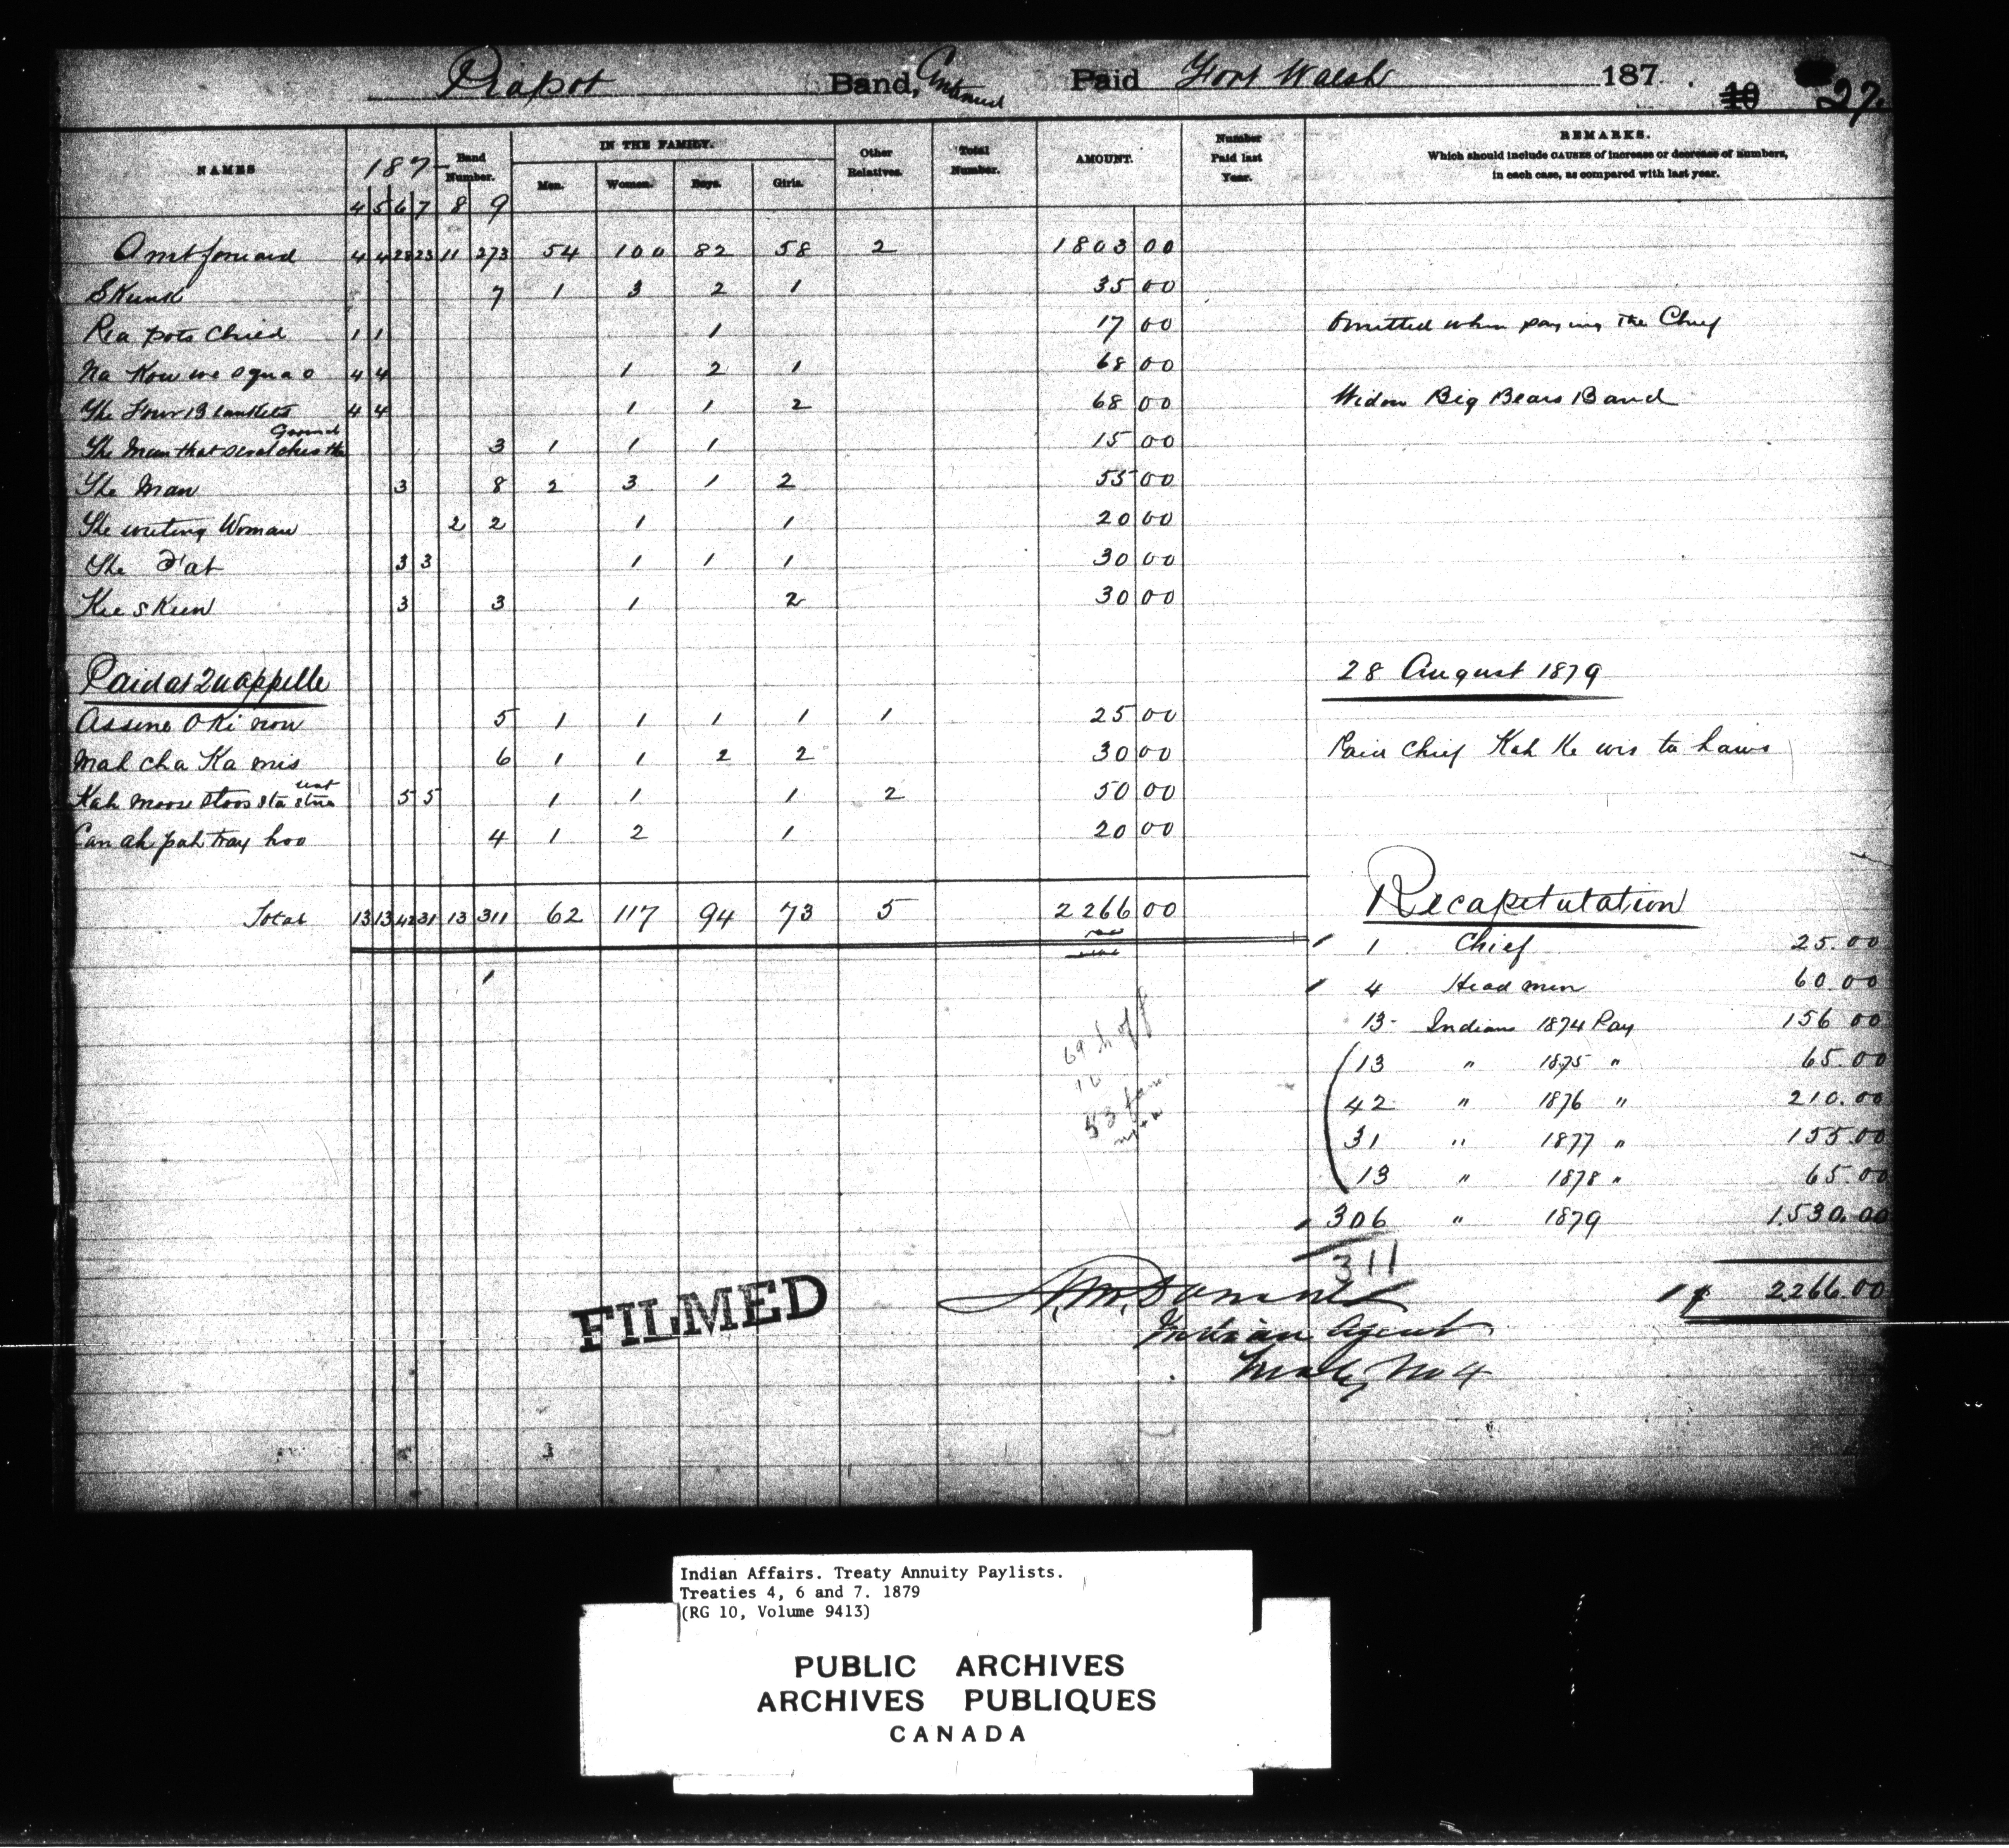 Piapot Band, Continued Paid Fort Walsh 187 . 10 27.
NAMES 187- Band Number. IN THE FAMILY. Other Relatives. Total Number. AMOUNT. Number Paid last Year. REMARKS.
Which should include CAUSES of increase or decrease of numbers, in each case, as compared with last year.
4 5 6 7 8 9 Men. Women. Boys. Girls.
Amt forward 4 4 28 23 11 273 54 100 82 58 2 1803 00
Skunk 7 1 3 2 1 35 00
Pia pots Child 1 1 1 17 00 Omitted when paying the Chief
Na Kou we squa o 4 4 1 2 1 68 00
The Four Blankets 4 4 1 1 2 68 00 Widow Big Bears Band
The Man that scratches the Ground 3 1 1 1 15 00
The Man 3 8 2 3 1 2 55 00
The writing Woman 2 2 1 1 20 00
The Fat 3 3 1 1 1 30 00
Kee s Keen 3 3 1 2 30 00
Paid at Quappelle 28 August 1879
Assine O Ki now 5 1 1 1 1 1 25 00
Mah cha Ka mis 6 1 1 2 2 30 00 Paid Chief Kah Ke wis ta haws
Kah moose toos sta 5 5 1 1 1 2 50 00
Can ah pah tray hoo 4 1 2 1 20 00
Total 13 13 42 31 13 311 62 117 94 73 5 2266 00
Recapitulation
1 Chief 25.00
4 Head men 60.00
13 Indians 1874 Pay 156 00
13 " 1875 " 65.00
42 " 1876 " 210.00
31 " 1877 " 155.00
13 " 1878 " 65.00
306 " 1879 1530.00
311
$ 2266.00
Indian Agent
Treaty No 4
FILMED
Indian Affairs. Treaty Annuity Paylists.
Treaties 4, 6 and 7. 1879
(RG 10, Volume 9413)
PUBLIC ARCHIVES
ARCHIVES PUBLIQUES
CANADA